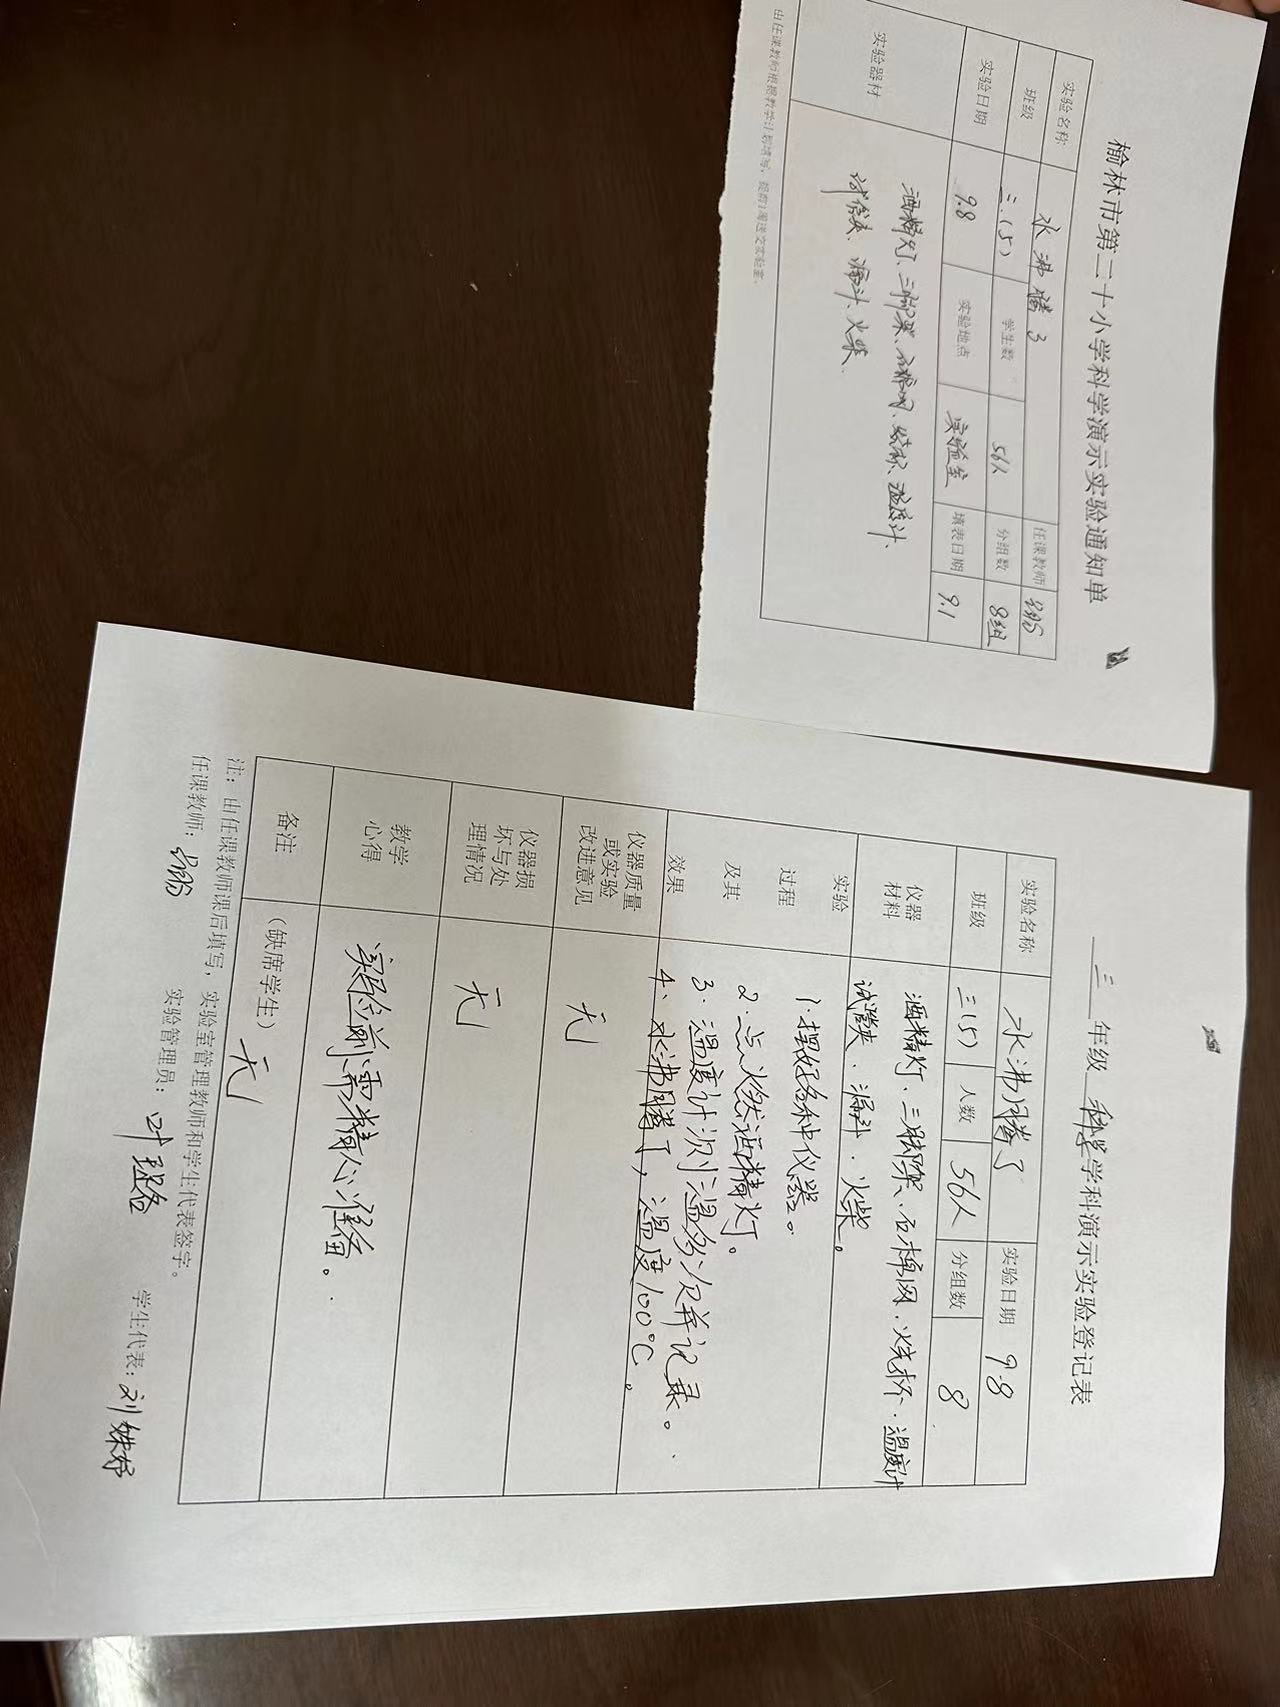 榆林市第二十小学科学演示实验通知单
实验名称 水沸腾了 任课教师
班级 三.(5) 学生数 56人 分组数 8组
实验日期 9.8 实验地点 实验室 填表日期 9.1
实验器材 酒精灯、三脚架、石棉网、烧杯、温度计、
试管夹、漏斗、火柴.
由任课教师根据教学计划填写，提前1周送交实验室。
三 年级 科学 学科演示实验登记表
实验名称 水沸腾了 实验日期 9.8
班级 三(5) 人数 56人 分组数 8
仪器
材料
酒精灯、三脚架、石棉网、烧杯、温度计
试管夹、漏斗、火柴。
实验
过程
及其
效果
1.摆好各种仪器。
2.点火燃酒精灯。
3.温度计测温多次并记录。
4.水沸腾了，温度100℃。
仪器质量
或实验
改进意见
无
仪器损
坏与处
理情况
无
教学
心得
实验前需精心准备。
备注 （缺席学生）无
注：由任课教师课后填写，实验室管理教师和学生代表签字。
任课教师： 实验管理员：叶 学生代表：刘姝妤